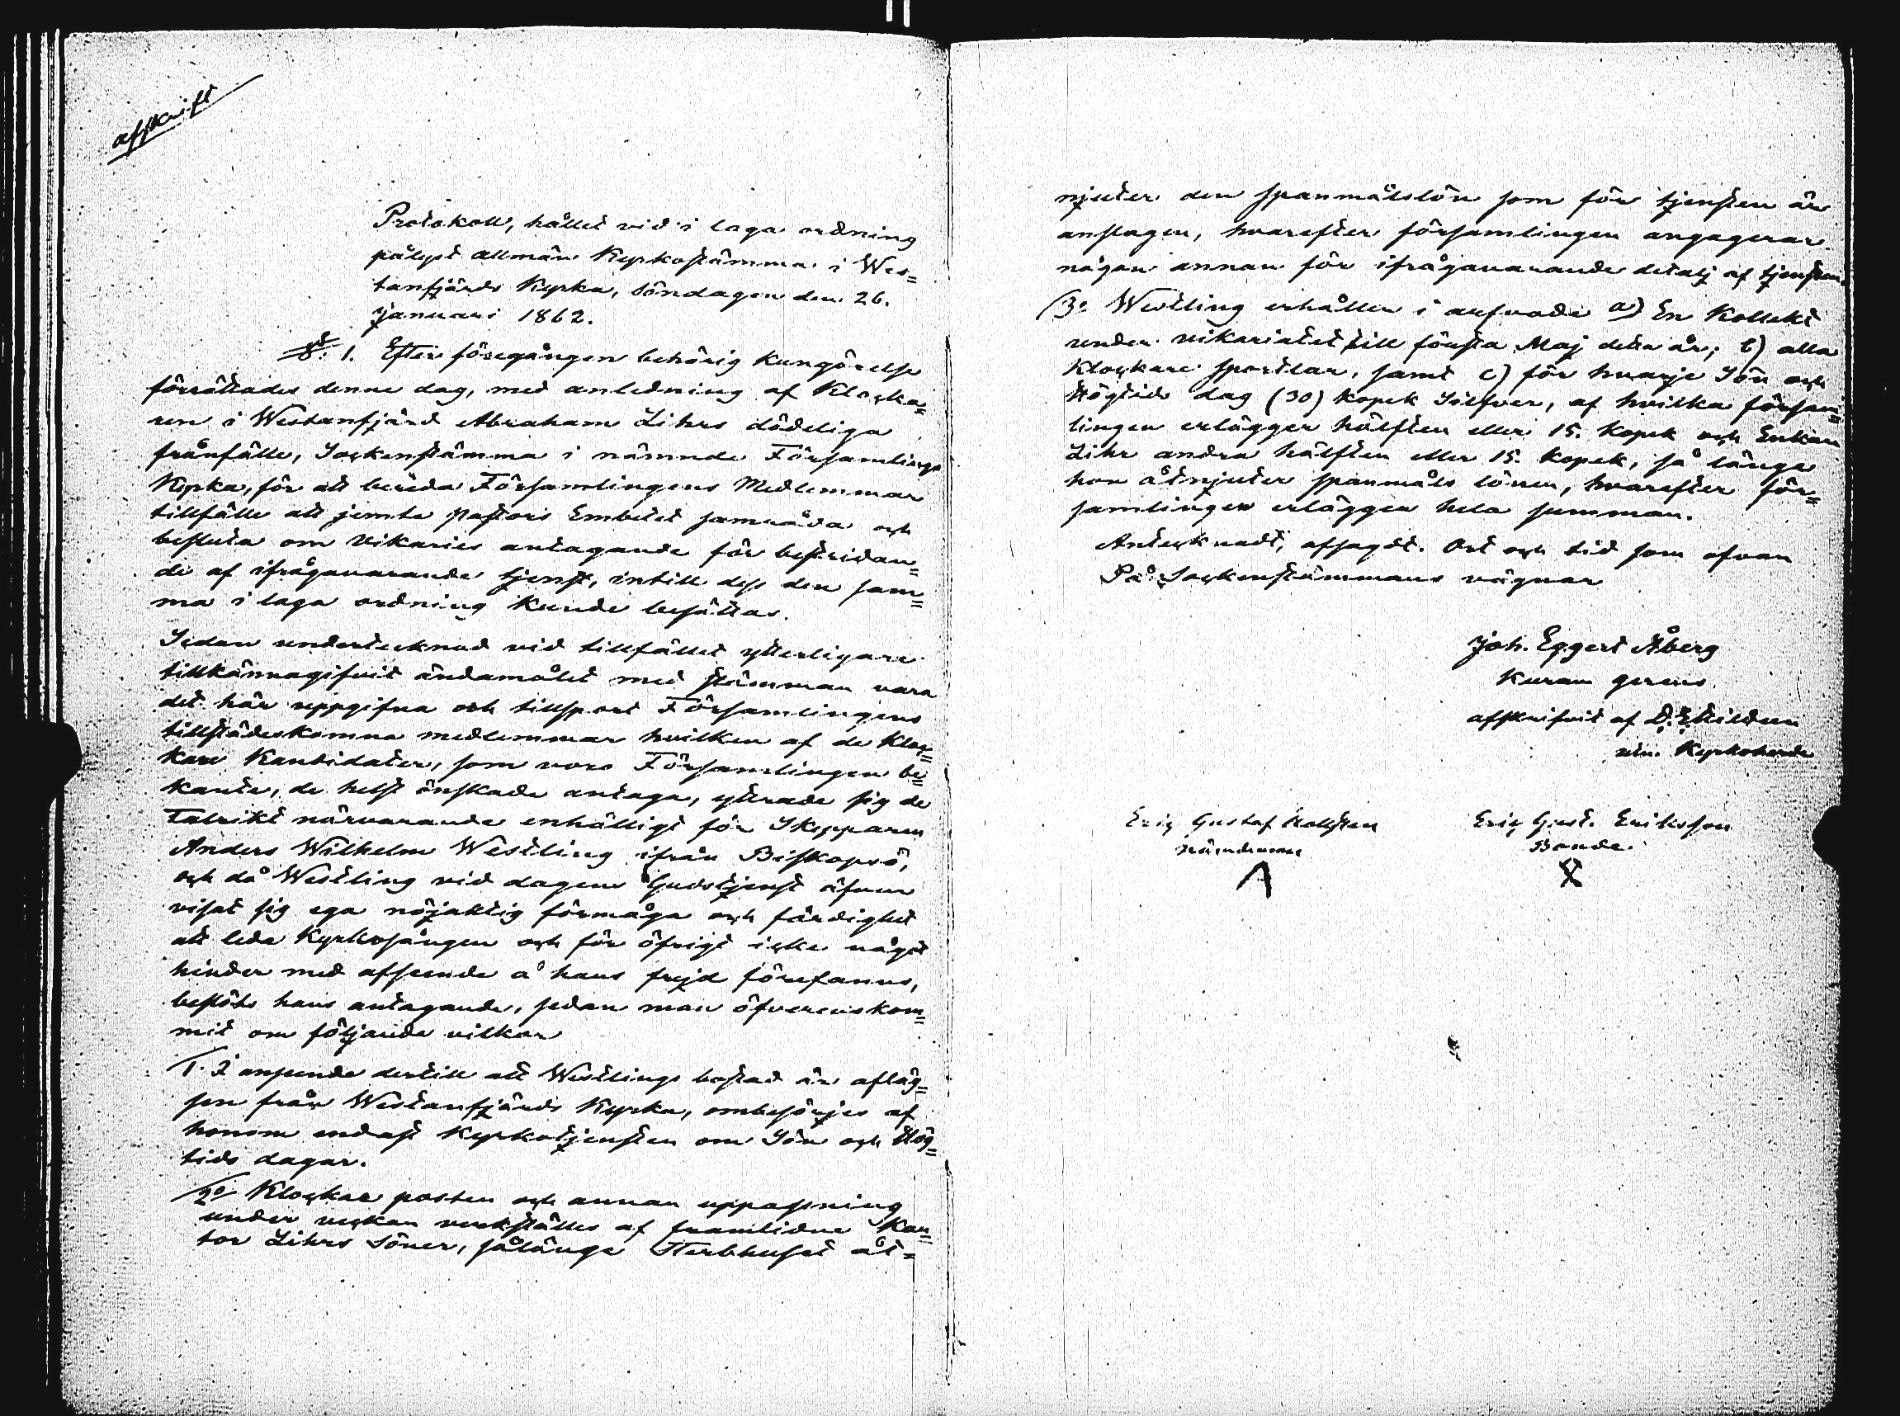 afskrift
Protokoll, hållet vid i laga ordning
pålyst allmän Kyrkostämma i Wes=
tanfjärds Kyrka, söndagen den 26.
Januari 1862.
§. 1. Efter föregången behörig kungörelse
förrättades denne dag, med anledning af Klocka=
ren i Westanfjärd Abraham Lihrs dödeliga
frånfälle, Sockenstämma i nämnde Församlings
Kyrka, för att bereda Församlingens Medlemmar
tillfälle att jemte Pastors Embetet samråda och
besluta om Vikaries antagande för bestridan=
de af ifrågavarande tjenst, intill dess den sam=
ma i laga ordning kunde besättas.
Sedan undertecknad vid tillfället ytterligare
tillkännagifvit ändamålet med stämman vara
det här uppgifna och tillsport Församlingens
tillstädeskomna medlemmar hvilken af de Kloc=
kare Kandidater, som voro Församlingen be=
kante, de helst önskade antaga, yttrade sig de
talrikt närvarande enhälligt för Skepparen
Anders Wilhelm Westling ifrån Biskopsö,
och då Westling vid dagens Gudstjenst äfven
visat sig ega nöjaktig förmåga och färdighet
att leda Kyrkosången och för öfrigt icke något
hinder med afseende å hans frejd förefanns,
beslöts hans antagande, sedan man öfverenskom=
mit om följande vilkor
1. I anseende dertill att Westlings bostad är afläg=
sen från Westanfjärds Kyrka, ombesörjes af
honom endast Kyrkotjensten om Sön och Hög=
tids dagar.
2o Klockare posten och annan uppassning
under veckan verkställes af framlidne Kan=
tor Lihrs Söner, sålänge Sterbhuset åt=
njuter den spanmålslön som för tjensten är
anslagen, hvarefter församlingen engagerar
någon annan för ifrågavarande detalj af tjensten.
3o Westling erhåller i arfvode a) En Kollekt
under vikariatet till första Maj detta år; b) alla
Klockare sportlar, samt c) för hvarje Sön och
Högtids dag (30) kopek Silfver, af hvilka försam=
lingen erlägger hälften eller 15. kopek och Enkan
Lihr andra hälften eller 15. kopek, så länge
hon åtnjuter spanmåls lönen, hvarefter för=
samlingen erlägger hela summan.
Antecknadt, afsagdt. Ort och tid som ofvan
På Sockenstämmans vägnar
Joh. Eggert Åberg
kuram gerens.
afskrifvit af
Kyrkoherde
Eric Gustaf
Eric Gust. Eriksson
Nämndeman
Bonde.